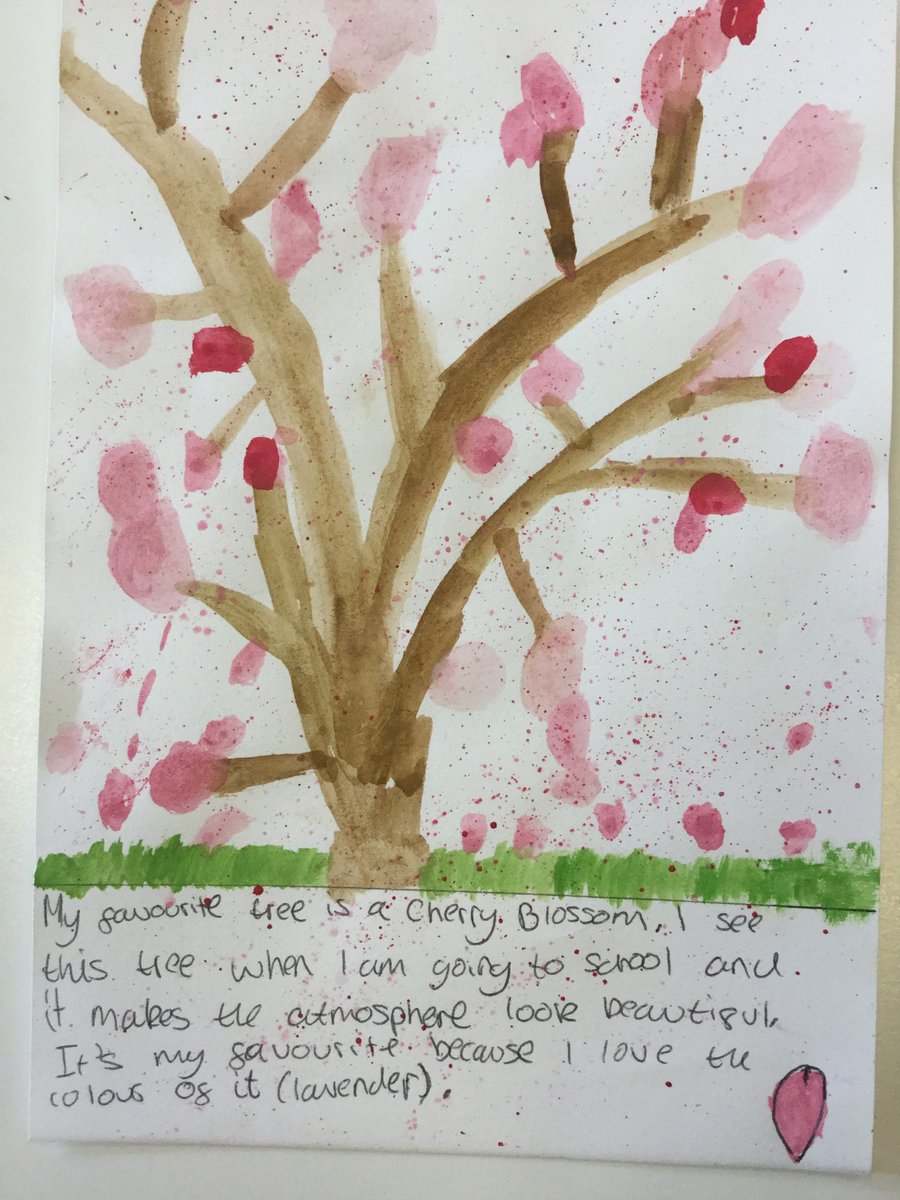 My favourite tree is a Cherry Blossom, I see
this tree when I am going to school and
it makes the atmosphere look beautiful.
It's my favourite because I love the
colour of it (lavender).